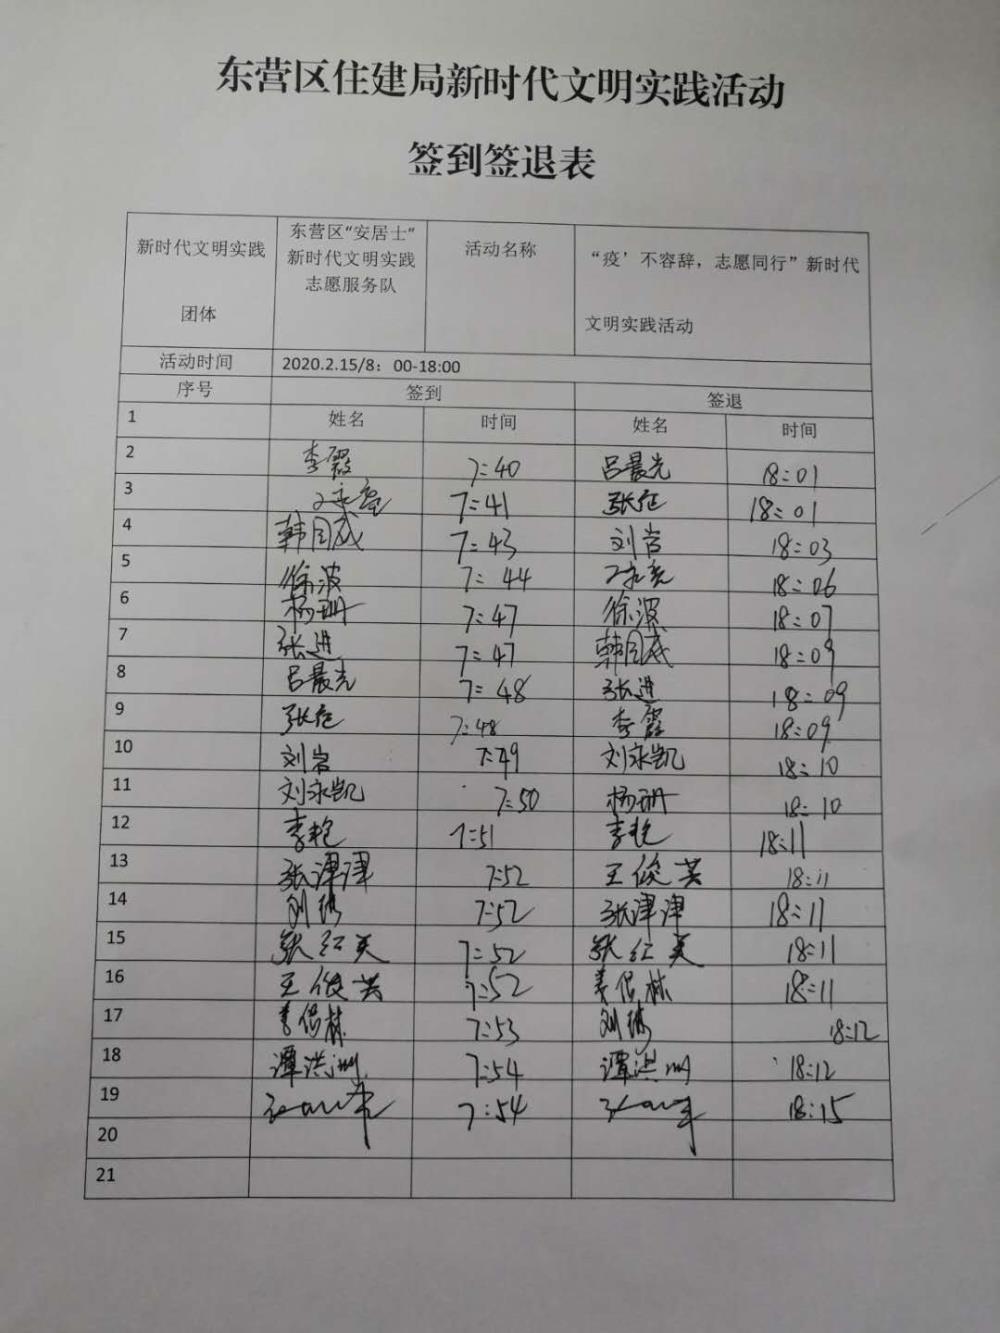 东营区住建局新时代文明实践活动
签到签退表
新时代文明实践
团体
东营区“安居士”
新时代文明实践
志愿服务队
活动名称
“疫’不容辞，志愿同行”新时代
文明实践活动
活动时间 2020.2.15/8：00-18:00
序号 签到 签退
1 姓名 时间 姓名 时间
2 李霞 7:40 吕晨光 18:01
3 7:41 18:01
4 韩国威 7:43 刘岩 18:03
5 徐波 7:44 18:06
6 杨珊 7:47 徐波 18:07
7 张进 7:47 韩国威 18:09
8 吕晨光 7:48 张进 18:09
9 7:48 李霞 18:09
10 刘岩 7:49 刘永凯 18:10
11 刘永凯 7:50 杨珊 18:10
12 李艳 7:51 李艳 18:11
13 张津津 7:52 王俊芸 18:11
14 7:52 张津津 18:11
15 张红美 7:52 张红美 18:11
16 王俊芸 7:52 姜保林 18:11
17 姜保林 7:53 18:12
18 谭洪州 7:54 谭洪州 18:12
19 7:54 18:15
20
21